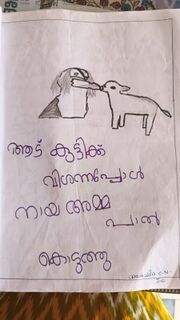 ആട് കുട്ടിക്ക്
വിശന്നപ്പോൾ
നായ അമ്മ
പാൽ
കൊടുത്തു